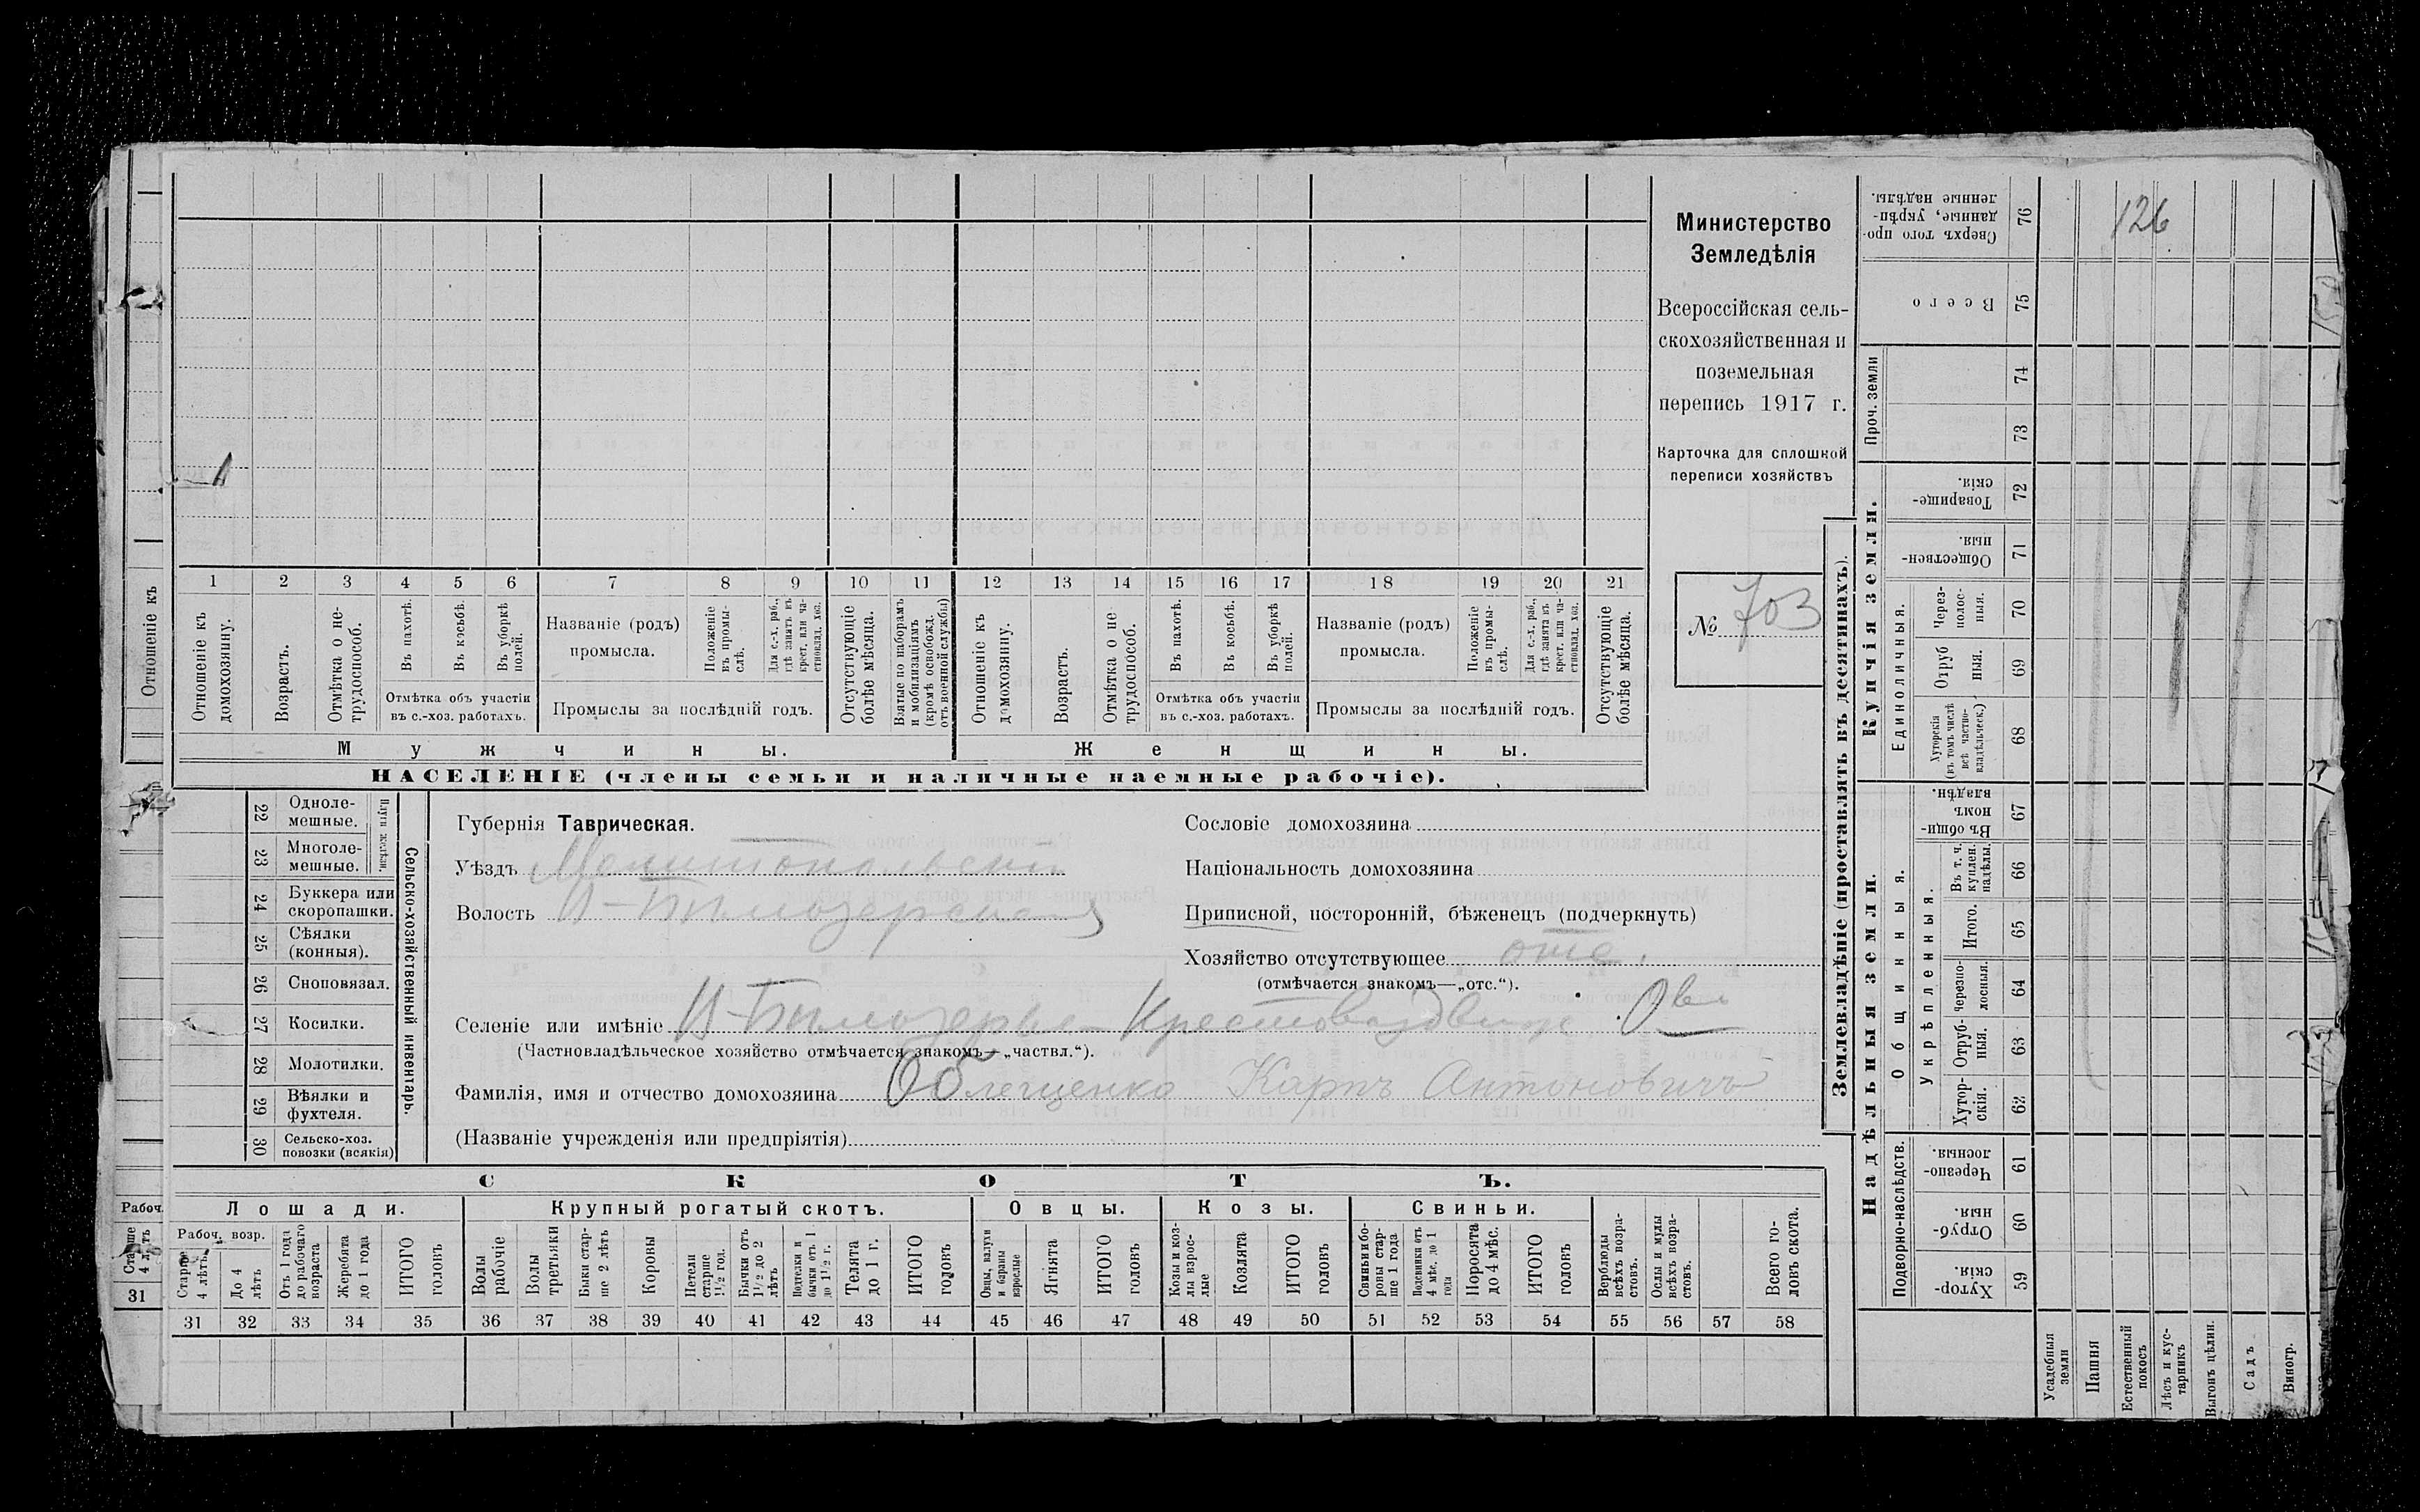 Министерство
Земледѣлія
Всероссійская сель-
скохозяйственная и
поземельная
перепись 1917 г.
Карточка для сплошной
переписи хозяйствъ
№ 703
1 2 3 4 5 6 7 8 9 10 11 12 13 14 15 16 17 18 19 20 21
Отношеніе къ
домохозяину.
Возрастъ.
Отмѣтка о не-
трудоспособ.
Въ пахотѣ.
Въ косьбѣ.
Въ уборкѣ
полей.
Отмѣтка объ участіи
въ с.-хоз. работахъ.
Названіе (родъ)
промысла.
Положеніе
въ промы-
слѣ.
Для с.-х. раб.,
гдѣ занятъ въ
крест. или ча-
стновлад. хоз.
Промыслы за послѣдній годъ.
Отсутствующіе
болѣе мѣсяца.
Взятые по наборамъ
и мобилизаціямъ
(кромѣ освобожд.
отъ военной службы)
Отношеніе къ
домохозяину.
Возрастъ.
Отмѣтка о не
трудоспособ.
Въ пахотѣ.
Въ косьбѣ.
Въ уборкѣ
полей.
Отмѣтка объ участіи
въ с.-хоз. работахъ.
Названіе (родъ)
промысла.
Положеніе
въ промы-
слѣ.
Для с.-х. раб.,
гдѣ занята въ
крест. или ча-
стновлад. хоз.
Промыслы за послѣдній годъ.
Отсутствующіе
болѣе мѣсяца.
Мужчины.
Женщины.
НАСЕЛЕНІЕ (члены семьи и наличные наемные рабочіе).
Отношеніе къ
Сельско-хозяйственный инвентарь.
22 Однолe-
мешные.
23 Многоле-
мешные.
24 Буккера или
скоропашки.
25 Сѣялки
(конныя).
26 Сноповязал.
27 Косилки.
28 Молотилки.
29 Вѣялки и
фухтеля.
30 Сельско-хоз.
повозки (всякія)
Губернія Таврическая.
Уѣздъ Мелитопольскій
Волость
Сословіе домохозяина
Національность домохозяина
Приписной, посторонній, бѣженецъ (подчеркнуть)
Хозяйство отсутствующее отс.
(отмѣчается знакомъ—„отс.“).
Селеніе или имѣніе
(Частновладѣльческое хозяйство отмѣчается знакомъ—„частвл.“).
Фамилія, имя и отчество домохозяина Облещенко Карпъ Антоновичъ
(Названіе учрежденія или предпріятія)
СКОТЪ.
Лошади.
Крупный рогатый скотъ.
Овцы.
Козы.
Свиньи.
Рабоч. возр.
Старше
4 лѣтъ
До 4
лѣтъ
Отъ 1 года
до рабочаго
возраста
Жеребята
до 1 года
ИТОГО
головъ
Волы
рабочіе
Волы
третьяки
Быки стар-
ше 2 лѣтъ
Коровы
Нетели
старше
1½ год.
Бычки отъ
1½ до 2
лѣтъ
Нотелки и
бычки отъ 1
до 1½ г.
Телята
до 1 г.
ИТОГО
головъ
Овцы, валухи
и бараны
взрослые
Ягнята
ИТОГО
головъ
Козы и коз-
лы взрос-
лые
Козлята
ИТОГО
головъ
Свиньи и бо-
ровы стар-
ше 1 года
Подсвинки отъ
4 мѣс. до 1
года
Поросята
до 4 мѣс.
ИТОГО
головъ
Верблюды
всѣхъ возра-
стовъ.
Ослы и мулы
всѣхъ возра-
стовъ.
Всего го-
ловъ скота.
31 32 33 34 35 36 37 38 39 40 41 42 43 44 45 46 47 48 49 50 51 52 53 54 55 56 57 58
Рабоч.
Старше
4 лѣтъ
31
Землевладѣніе (проставлять въ десятинахъ).
Купчія земли.
Надѣльныя земли.
Сверхъ того про-
данные, укрѣп-
ленные надѣлы.
76
126
Всего
75
Проч. земли
74
73
Товарище-
скія.
72
Обществен-
ныя.
71
Единоличныя.
Через-
полос-
ныя.
70
Отруб
ныя.
69
Хуторскія
(въ томъ числѣ
всѣ частно-
владѣльческ.)
68
Общинныя.
Въ общи-
номъ
владѣн.
67
Укрѣпленныя.
Въ т. ч.
куплен.
надѣлы.
66
Итого.
65
Черезпо-
лосныя.
64
Отруб-
ныя.
63
Хутор-
скія.
62
Подворно-наслѣдств.
Черезпо-
лосныя.
61
Отруб-
ныя.
60
Хутор-
скія.
59
Усадебныя
земли
Пашня
Естественный
покосъ
Лѣсъ и кус-
тарникъ
Выгонъ цѣлин.
Садъ
Виногр.